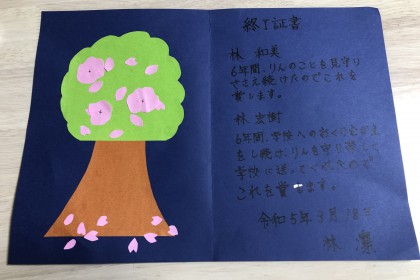 終了証書
林 和美
6年間、りんのことを見守り
ささえ続けたのでこれを
賞します。
林 宏樹
6年間、学校への
をし続け、りんを守り
学校に送ってくれたので
これを賞します。
令和5年3月18日
林 凛